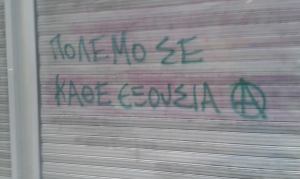 ΠΟΛΕΜΟ ΣΕ
ΚΑΘΕ ΕΞΟΥΣΙΑ Ⓐ